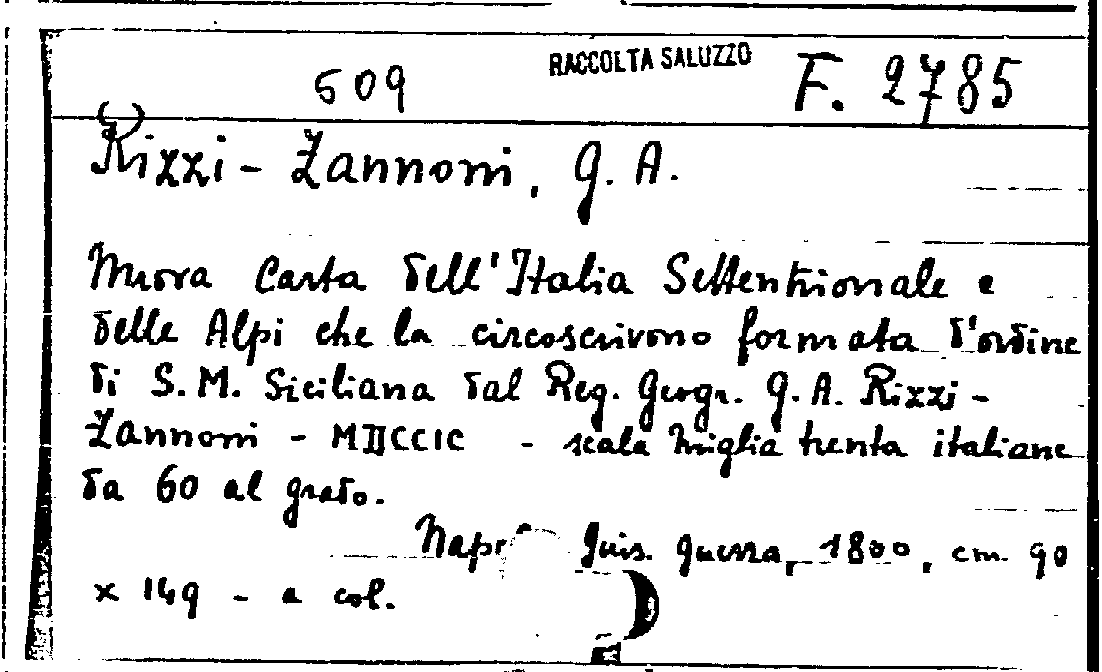 509 RACCOLTA SALUZZO F. 2785
Rizzi - Zannoni, G. A.
Nuova Carta dell'Italia Settentrionale e
delle Alpi che la circoscrivono formata d'ordine
di S.M. Siciliana dal Reg. Geogr. G. A. Rizzi -
Zannoni - MDCCIC - scala miglia trenta italiane
da 60 al grado.
Gius. Guerra, 1800, cm. 90
x 149 - a col.